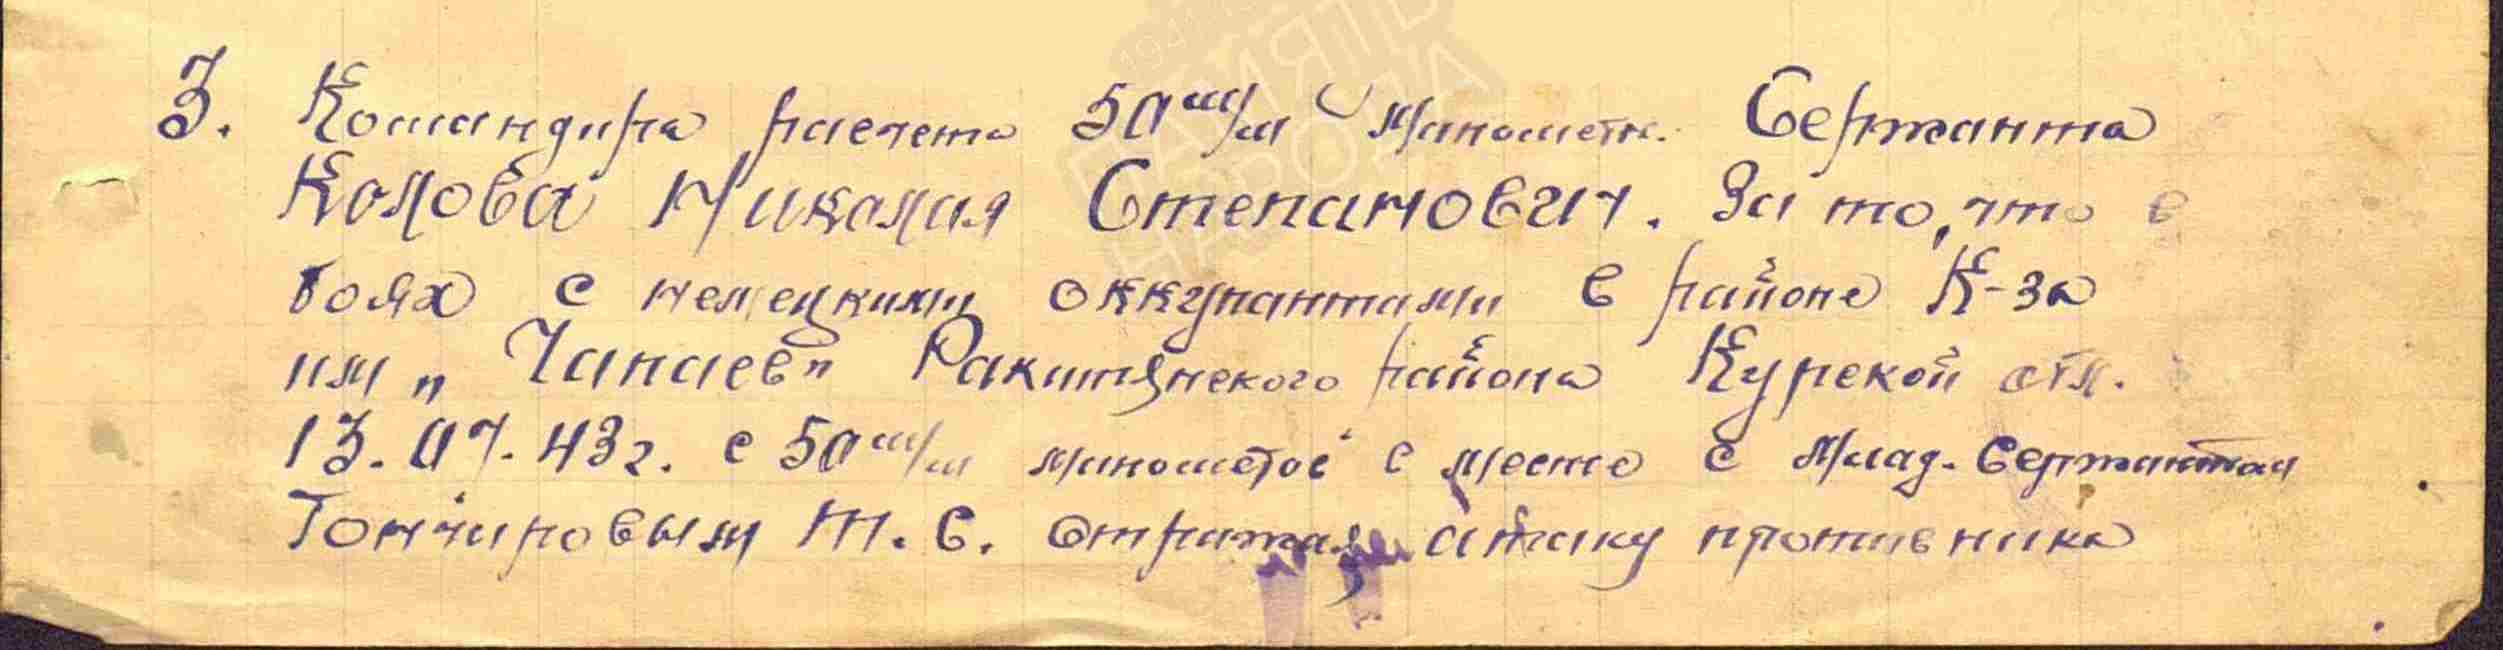 3. Командира расчета 50 м/м минометн. Сержанта
Колова Николая Степанович. За то, что в
боях с немецкими оккупантами в районе К-за
им „Чапаев" Ракитянского района Курской обл.
13.07.43г. с 50 м/м минометов с месте с Млад. Сержантом
Гончаровым Т. С. отражая атаку противника
1941
ПАМЯТЬ
НАРОДА